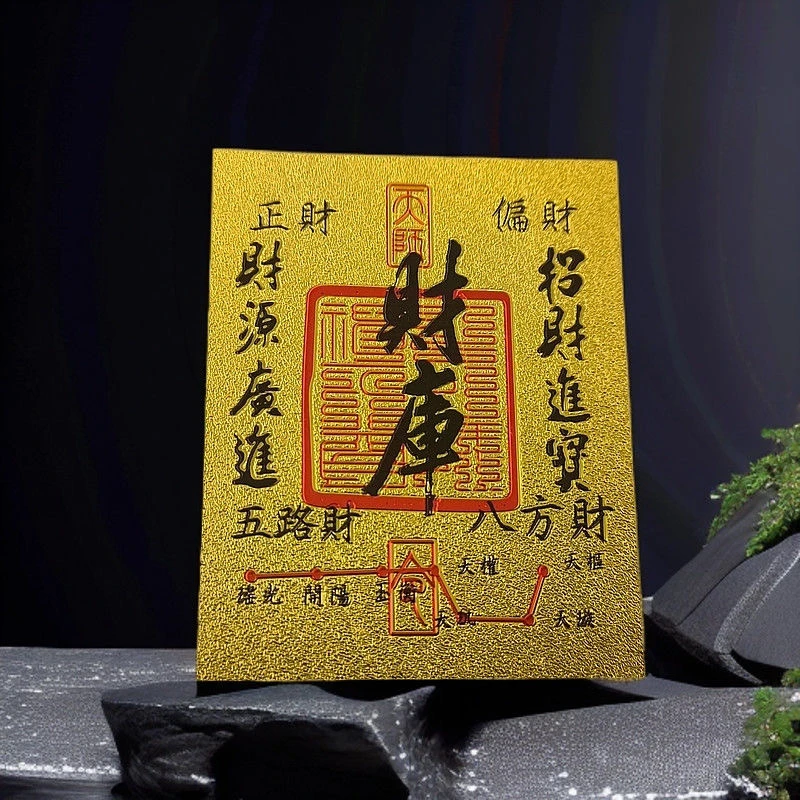 天師
正財
偏財
財源廣進
財庫
招財進寶
五路財
八方財
天權
天樞
瑤光
開陽
玉衡
天璇